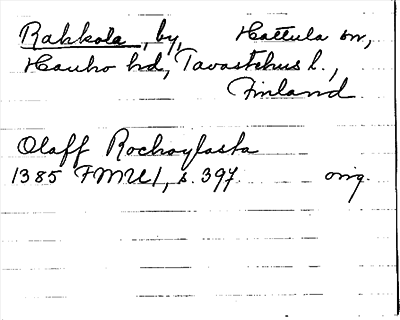 Rakkola, by, Hattula sn,
Hauho hd, Tavastehus l.,
Finland
Olaff Rochoylasta
1385 FMU I, s. 397. orig.